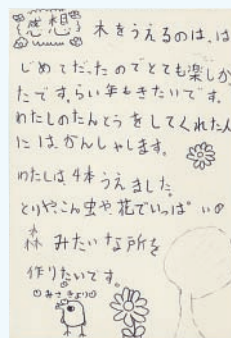 感想 木をうえるのは、は
じめてだったのでとても楽しか
たです。らい年もきたいです。
わたしのたんとうをしてくれた人
には、かんしゃします。
わたしは、4本うえました。
とりや、こん虫や、花でいっぱいの
森みたいな所を
作りたいです。
みさきより